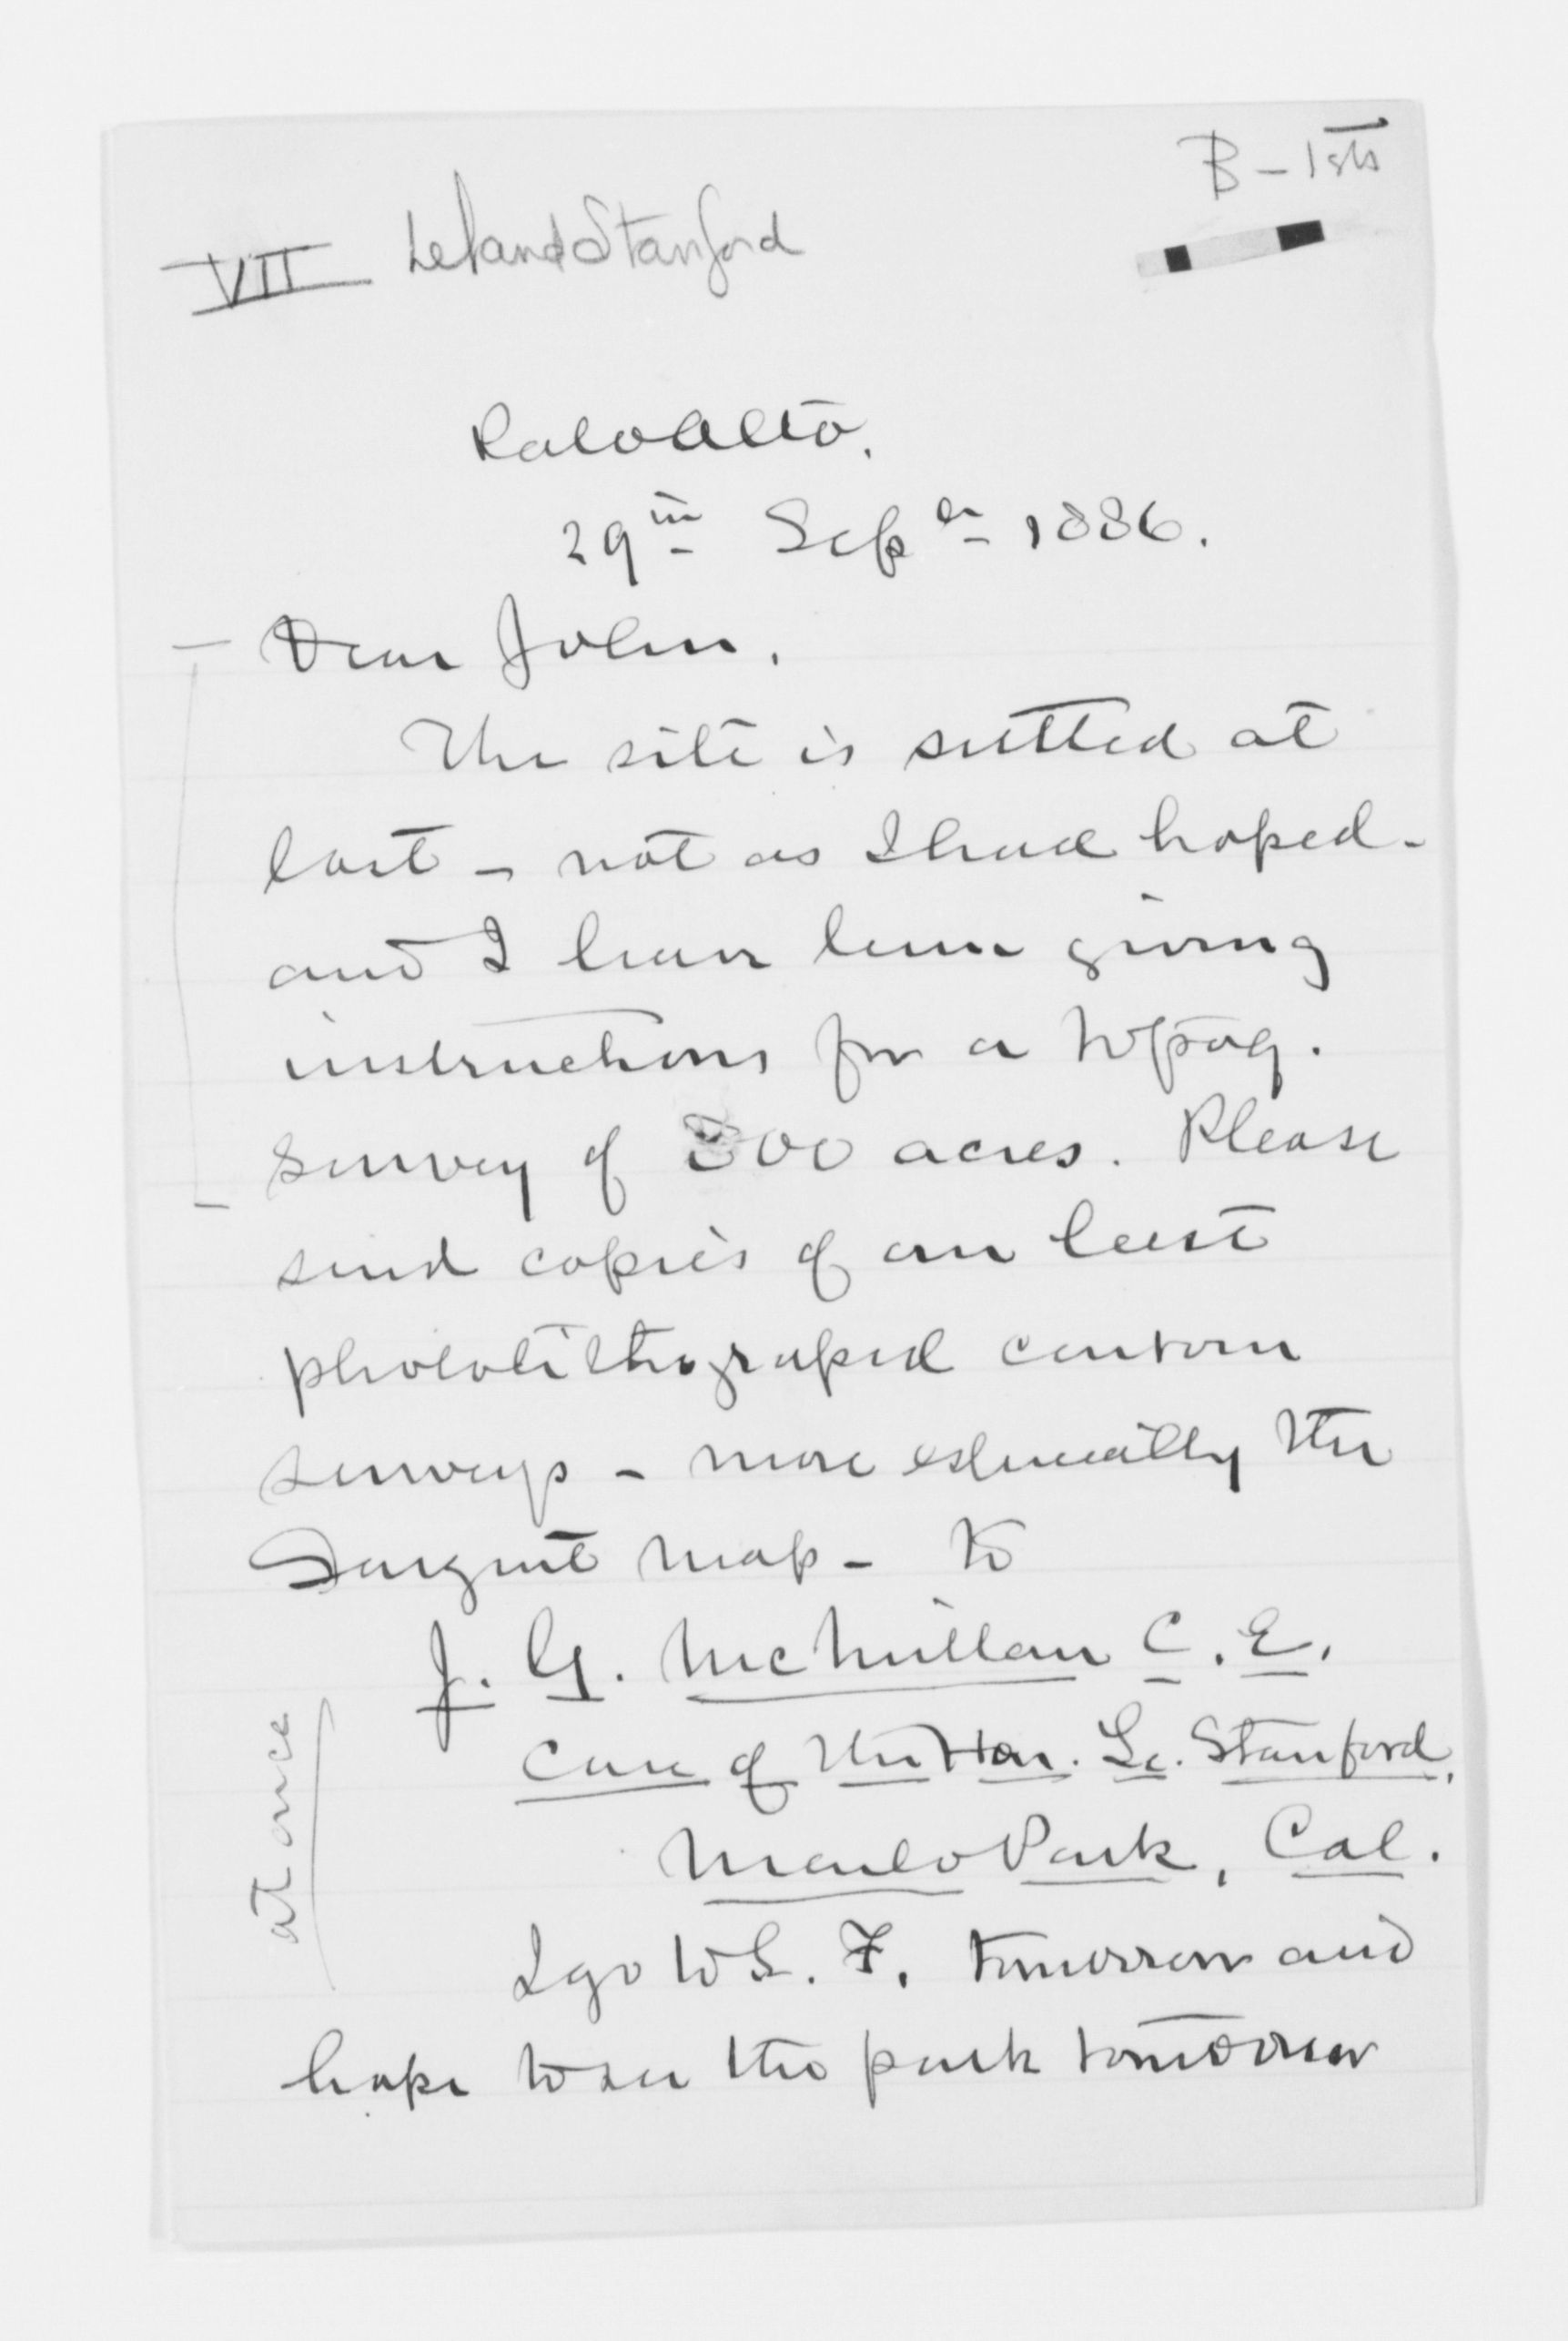 B - 1sts
VII Leland Stanford
Palo Alto.
29th Sepr 1886.
Dear John,
The site is settled at
last - not as I had hoped -
and I have been giving
instructions for a topog.
survey of 500 acres. Please
send copies of our best
photolithograped contour
surveys - more especially the
Sargent map - to
J. G. McMillan C. E.
Care of the Hon. Le. Stanford,
Menlo Park, Cal.
at once
I go to S. F. tomorrow and
hope to see the park tomorrow